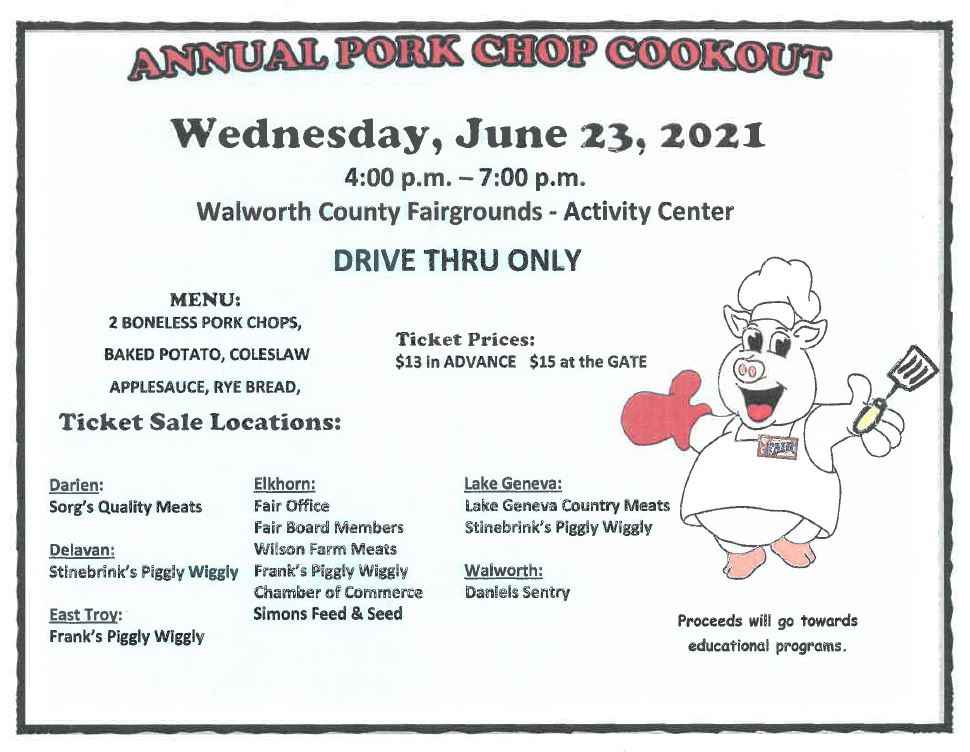 ANNUAL PORK CHOP COOKOUT
Wednesday, June 23, 2021
4:00 p.m. – 7:00 p.m.
Walworth County Fairgrounds - Activity Center
DRIVE THRU ONLY
MENU:
2 BONELESS PORK CHOPS,
BAKED POTATO, COLESLAW
APPLESAUCE, RYE BREAD,
Ticket Prices:
$13 in ADVANCE $15 at the GATE
FAIR
Ticket Sale Locations:
Darien:
Sorg's Quality Meats
Delavan:
Stinebrink's Piggly Wiggly
East Troy:
Frank's Piggly Wiggly
Elkhorn:
Fair Office
Fair Board Members
Wilson Farm Meats
Frank's Piggly Wiggly
Chamber of Commerce
Simons Feed & Seed
Lake Geneva:
Lake Geneva Country Meats
Stinebrink's Piggly Wiggly
Walworth:
Daniels Sentry
Proceeds will go towards
educational programs.